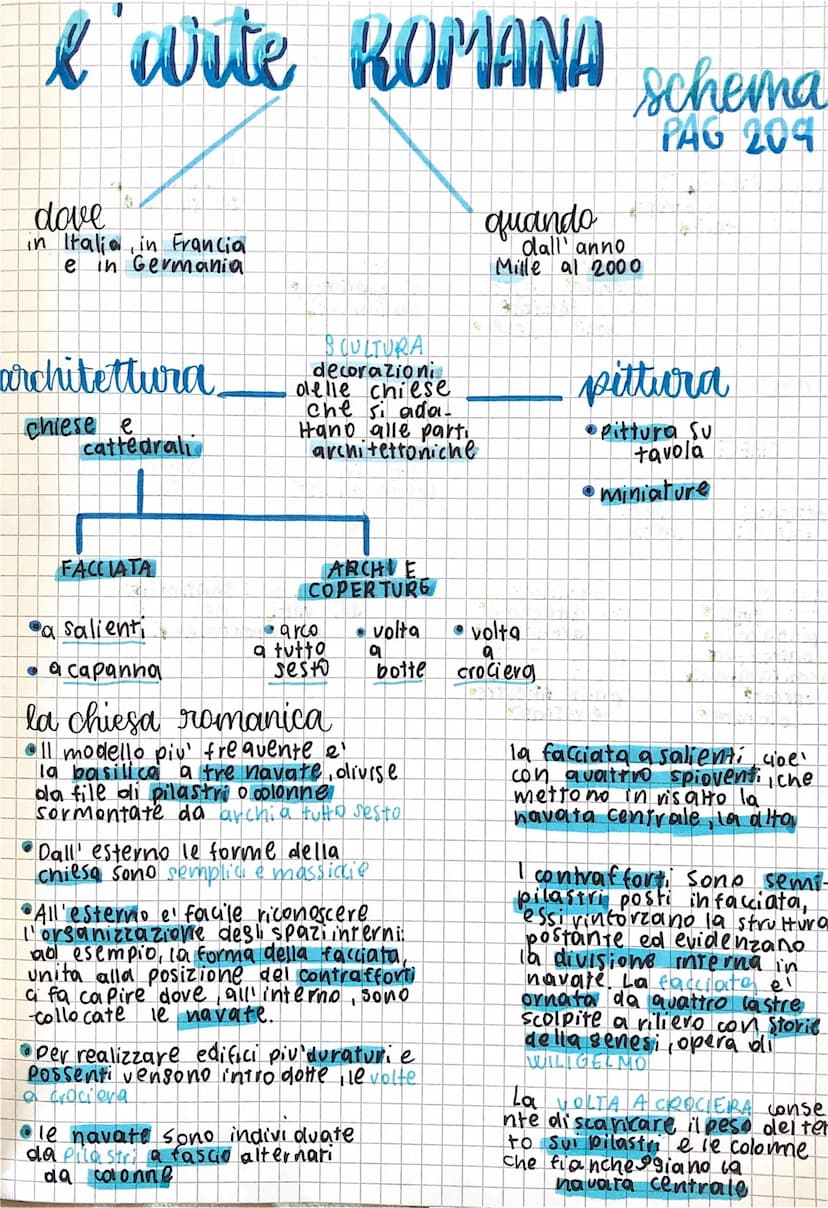 l'arte ROMANA
schema
PAG 209
dove
in Italia, in Francia
e in Germania
quando
dall'anno
Mille al 2000
architettura
chiese e
cattedrali
SCULTURA
decorazioni
delle chiese
che si adat-
tano alle parti
architettoniche
pittura
• pittura su
tavola
• miniature
FACCIATA
ARCHI E
COPERTURE
• a salienti
• a capanna
• arco
a tutto
sesto
• volta
a
botte
• volta
a
crociera
la chiesa romanica
• Il modello piu' frequente e'
la basilica a tre navate, divise
da file di pilastri o colonne
sormontate da archi a tutto sesto
• Dall'esterno le forme della
chiesa sono semplici e massiccie
• All'esterno e' facile riconoscere
l'organizzazione degli spazi interni:
ad esempio, la forma della facciata,
unita alla posizione dei contrafforti
ci fa capire dove, all'interno, sono
collocate le navate.
• per realizzare edifici piu' duraturi e
possenti vengono introdotte, le volte
a crociera
• le navate sono individuate
da pilastri a fascio alternati
da colonne
la facciata a salienti, cioe'
con quattro spioventi, che
mettono in risalto la
navata centrale, la alta
I contrafforti sono semi-
pilastri posti in facciata,
essi rinforzano la struttura
postante ed evidenzano
la divisione interna in
navate. La facciata e'
ornata da quattro lastre
scolpite a riliero con storie
della genesi, opera di
WILIGELMO
La VOLTA A CROCIERA conse
nte di scaricare il peso del tet
to sui pilastri e le colonne
che fiancheggiano la
navata centrale